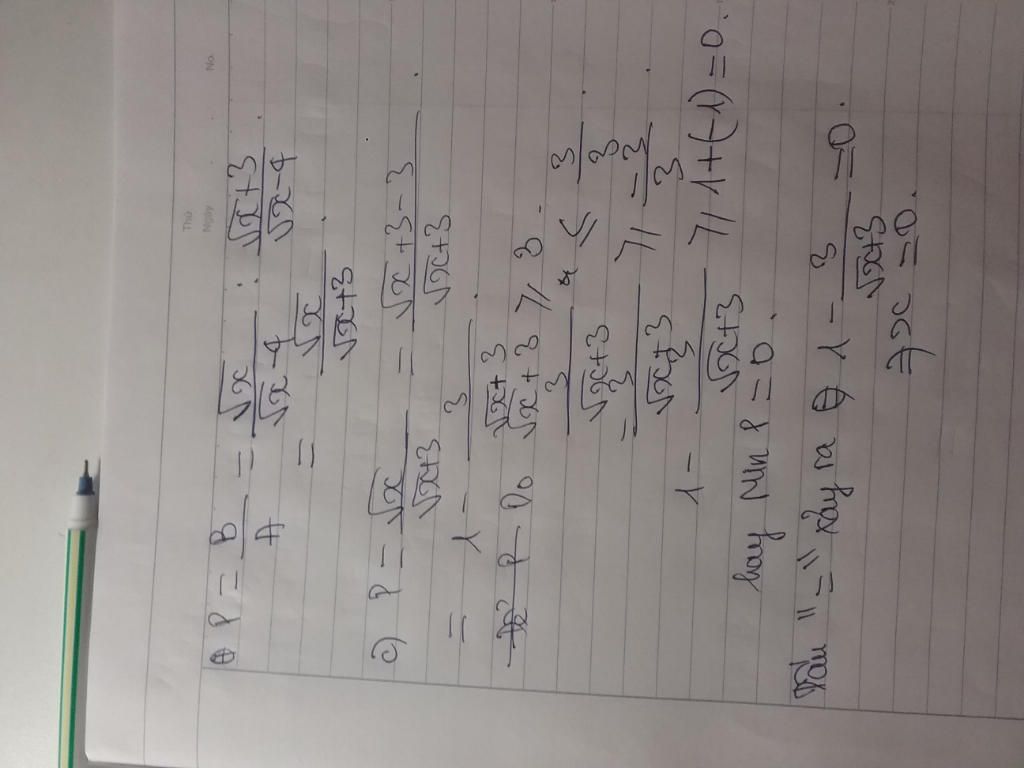 Thứ
Ngày No.
⊕ P = B/A = √x/(√x-4) : (√x+3)/(√x-4).
= √x/(√x+3).
c) P = √x/(√x+3) = (√x+3-3)/(√x+3).
= 1 - 3/(√x+3).
P Do √x+3 ⩾ 3.
3/(√x+3) ≤ 3/3.
-3/(√x+3) ⩾ -3/3.
1 - 3/(√x+3) ⩾ 1+(-1)=0.
hay min P = 0.
Dấu "=" xảy ra ⊕ 1 - 3/(√x+3) = 0.
x = 0.